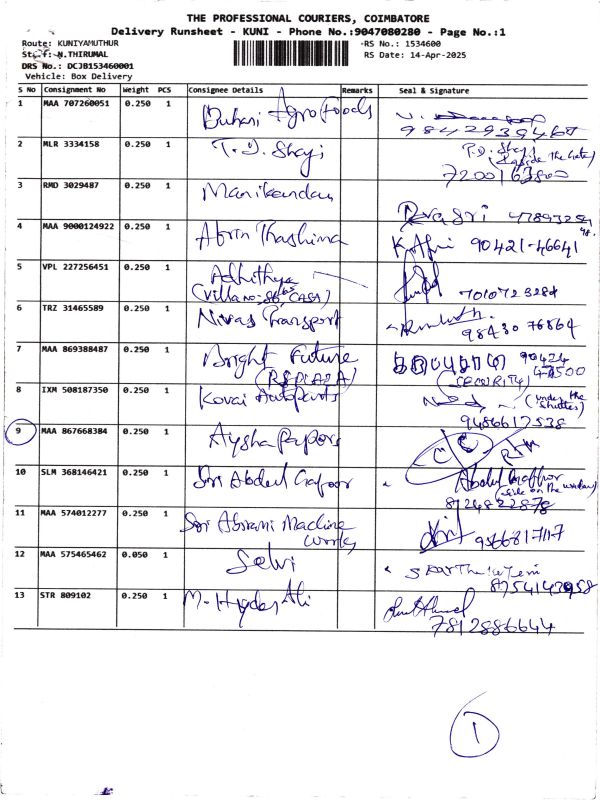 THE PROFESSIONAL COURIERS, COIMBATORE
Delivery Runsheet - KUNI - Phone No.:9047080280 - Page No.:1
Route: KUNIYAMUTHUR RS No.: 1534600
Staff: N.THIRUMAL RS Date: 14-Apr-2025
DRS No.: DCJB153460001
Vehicle: Box Delivery
S No Consignment No Weight PCS Consignee Details Remarks Seal & Signature
1 MAA 707260051 0.250 1 Buhari Agro Foods
9842939460
2 MLR 3334158 0.250 1 T. J. Shaji T. J. Shaji
(inside the gate)
3 RMD 3029487 0.250 1 Manikandan
4 MAA 9000124922 0.250 1 Afrin Thashima K. Afrin 90421-46641
5 VPL 227256451 0.250 1 Adhithya
7010723284
6 TRZ 31465589 0.250 1 Nivas Transport
98430 76864
7 MAA 869388487 0.250 1 Bright Future 90424
(RS PLAZA) 47500
(SECURITY)
8 IXM 508187350 0.250 1 Kovai Autoparts (under the
shutter)
9486617538
9 MAA 867668384 0.250 1 Aysha Papers
10 SLM 368146421 0.250 1 Sri Abdul Gafoor Abdul Gaffoor
8124822878
11 MAA 574012277 0.250 1 Sri Abirami Machine
Works 9566817117
12 MAA 575465462 0.050 1 Selvi
13 STR 809102 0.250 1 M. Hyder Ali
7812886644
1